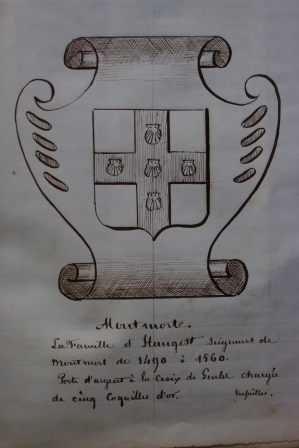 Montmort.
La Famille d'Hangest Seigneurs de
Montmort de 1490 à 1560.
Porte d'argent à la Croix de Geules chargée
de cinq Coquilles d'or. Versailles.